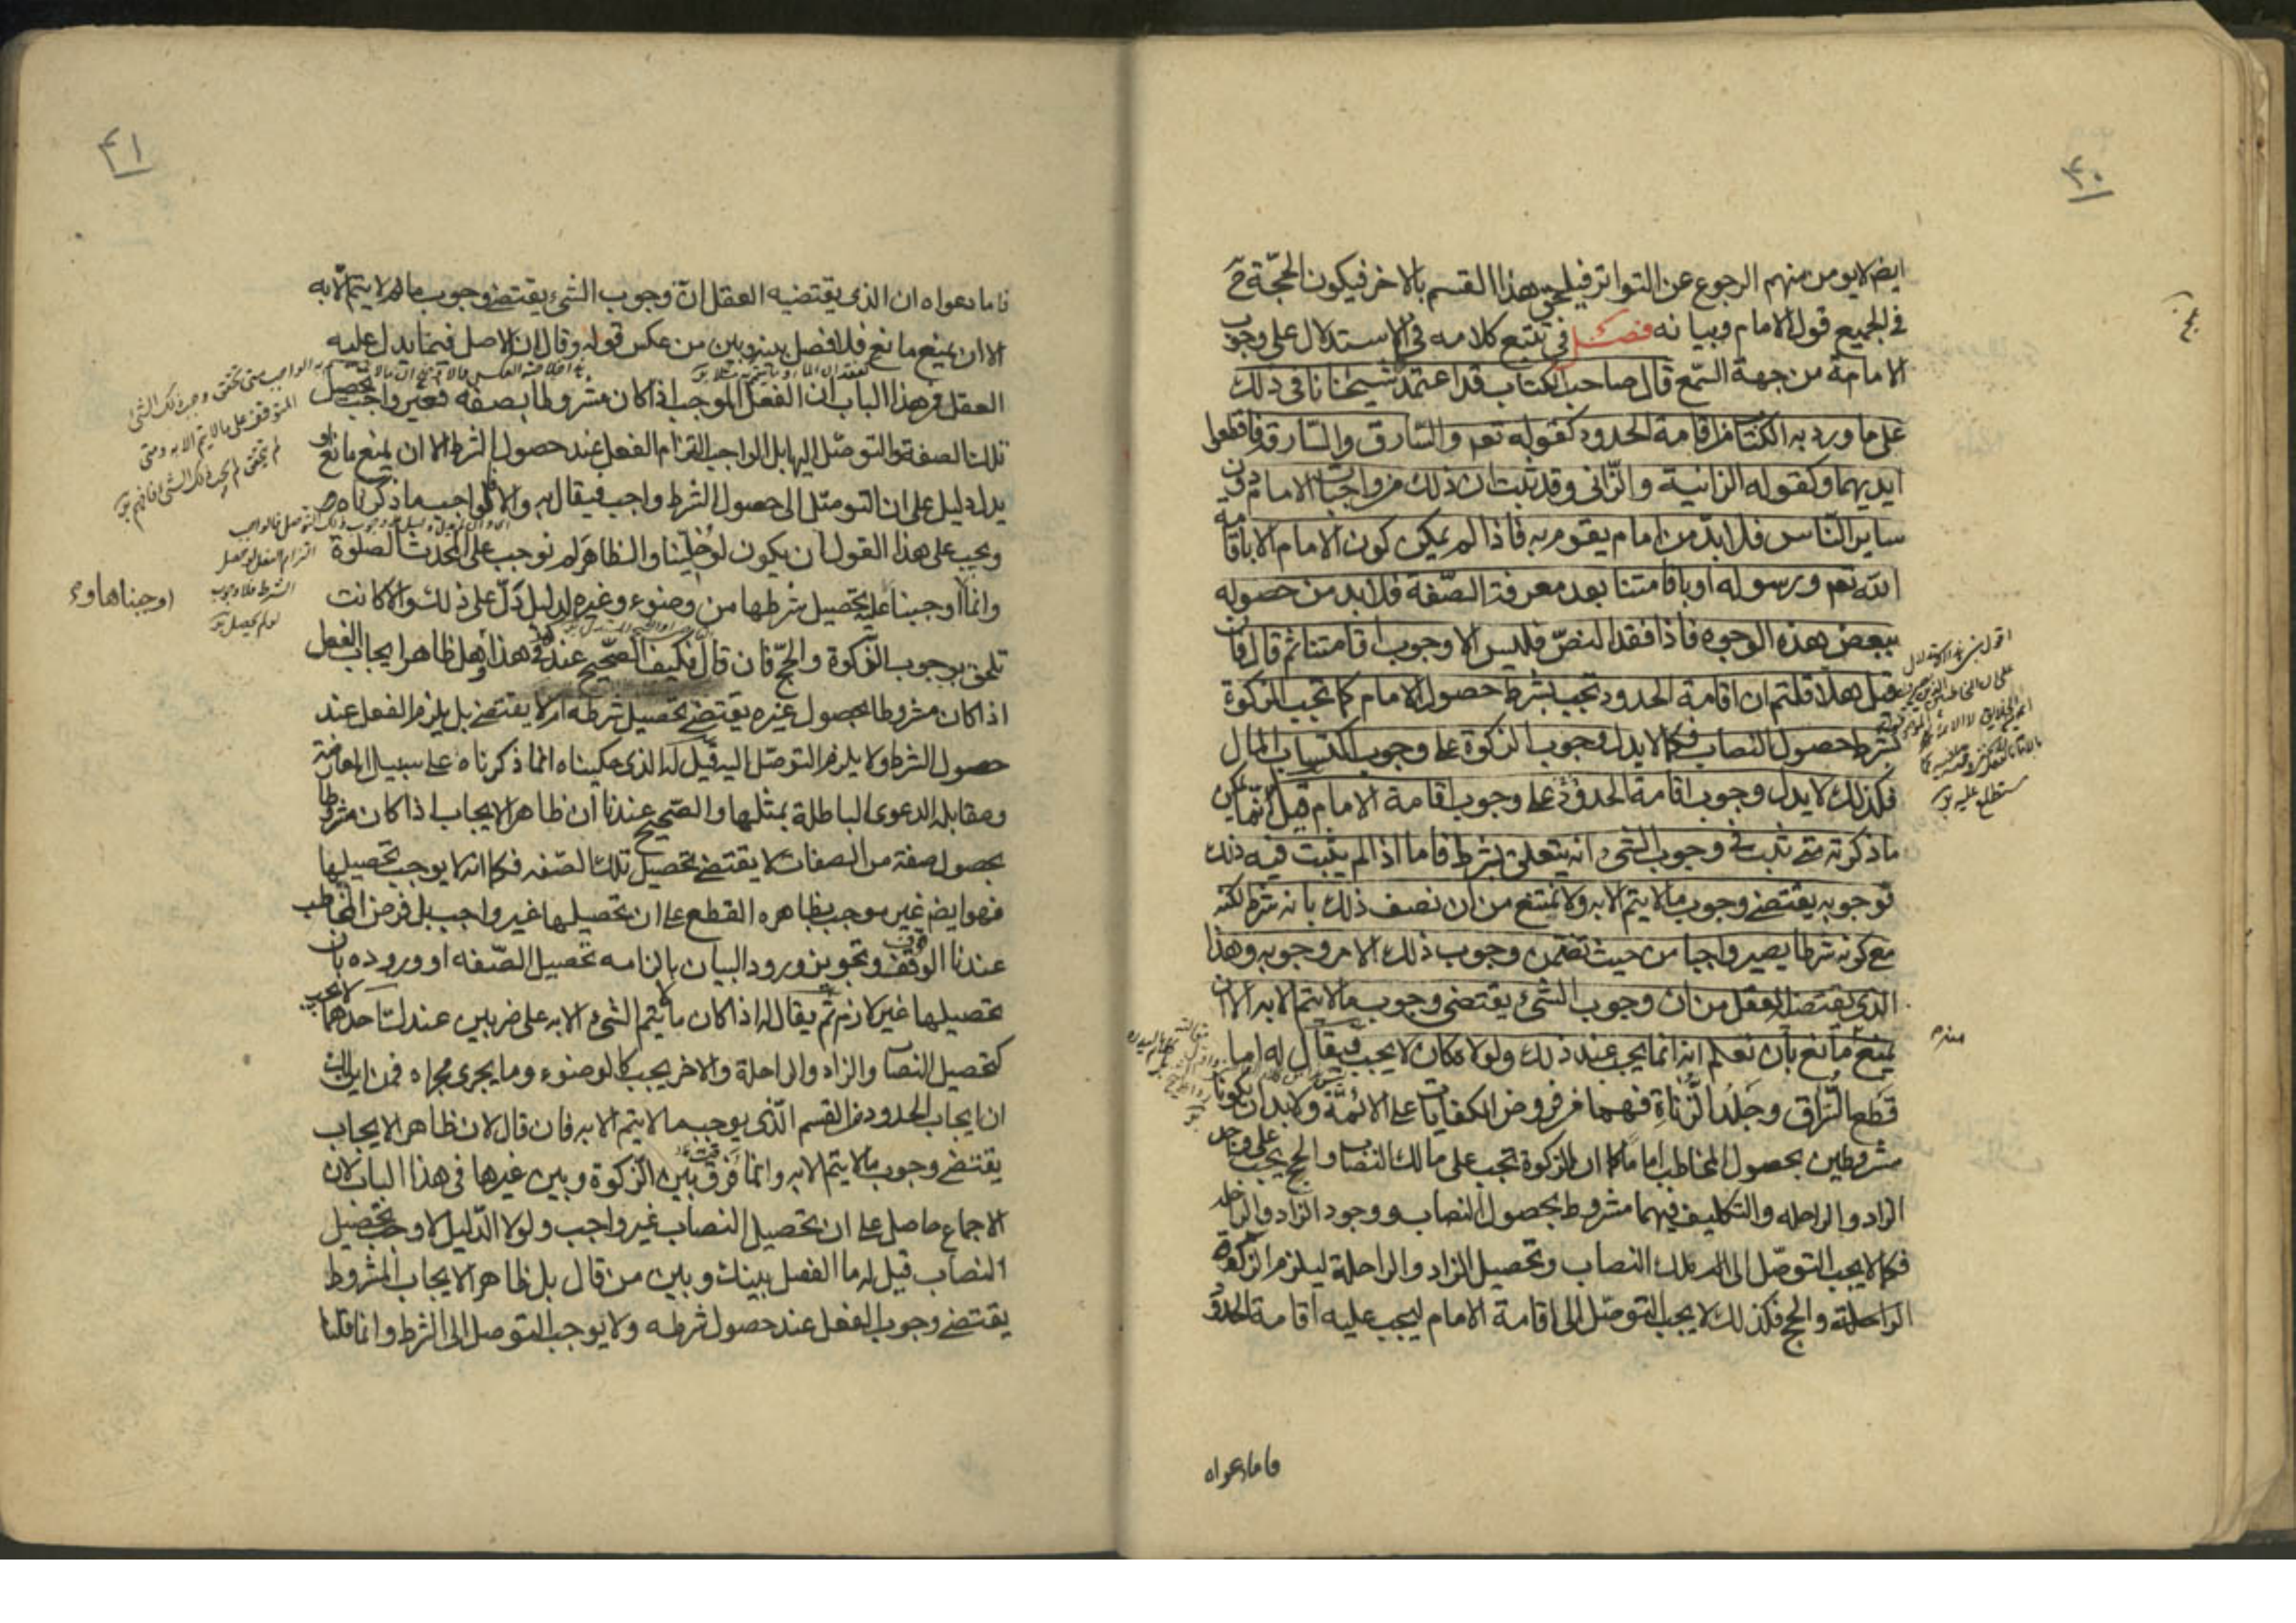 ٤٠
ايض لا يومن منهم الرجوع عن التواتر فيلحق هذا القسم بالاخر فيكون الحجّة ح
في الجميع قول الامام وبيانه فصل في تتبع كلامه في الاستدلال على وجوب
الامامة من جهة السّمع قال صاحب الكتاب قد اعتمد شيخانا في ذلك
على ما ورد به الكتاب من اقامة الحدود كقوله تعم والسّارق والسّارقة فاقطعوا
ايديهما وكقوله الزانية والزّاني وقد ثبت ان ذلك من واجبات الامام دون
ساير النّاس فلا بدّ من امام يقوم به فاذا لم يمكن كون الامام الا باقامة
الله تعم ورسوله او باقامتنا بعد معرفة الصّفة فلا بد من حصوله
ببعض هذه الوجوه فاذا فقد النصّ فليس الا وجوب اقامتنا ثم قال فان
قيل هلا قلتم ان اقامة الحدود تجب بشرط حصول الامام كما تجب الزكوة
بشرط حصول النصاب فكما لا يدل وجوب الزكوة على وجوب اكتساب المال
فكذلك لا يدل وجوب اقامة الحدود على وجوب اقامة الامام قيل له انما يمكن
ما ذكرته متى ثبت في وجوب الشيء انه يتعلق بشرط فاما اذا لم يثبت فيه ذلك
فوجوبه يقتضي وجوب ما لا يتم الا به ولا نمتنع من ان نصف ذلك بانه شرط لكنه
مع كونه شرطا يصير واجبا من حيث تضمن وجوب ذلك الامر وجوبه وهذا
الذي يقتضيه العقل من ان وجوب الشيء يقتضي وجوب ما لا يتم الا به الا ان
يمنع مانع بان نعلم انه انما يجب عند ذلك ولولا مكان لا يجب فيقال له اما
قطع السّراق وجلد الزّناة فهما من فروض الكفايات على الائمّة ولا بد ان يكونا
مشروطين بحصول المخاطب اماما كما ان الزكوة تجب على مالك النصاب والحج يجب على واجد
الزاد والراحله والتكليف فيهما مشروط بحصول النصاب ووجود الزاد والراحلة
فكما لا يجب التوصّل الى ملك النصاب وتحصيل الزاد والراحلة ليلزم الزكوة
الراحلة والحج فكذلك لا يجب التوصّل الى اقامة الامام ليجب عليه اقامة الحدود
فاما دعواه
٤١
فاما دعواه ان الذي يقتضيه العقل انّ وجوب الشيء يقتضي وجوب ما لا يتم الّا به
الا ان يمنع مانع فلا فصل بينه وبين من عكس قوله وقال ان الاصل فيما يدل عليه
العقل في هذا الباب ان الفعل الموجب اذا كان مشروطا بصفه فغير واجب تحصيل
تلك الصفة والتوصّل اليها بل الواجب التزام الفعل عند حصول الشرط الا ان يمنع مانع او
يدل دليل على ان التوصّل الى حصول الشرط واجب فيقال به والا فالواجب ما ذكرناه
ويجب على هذا القول ان يكون لو خلّينا والظاهر لم نوجب على المحدث الصلوة
وانما اوجبنا عليه تحصيل شرطها من وضوء وغيره لدليل دلّ على ذلك والا كانت
تلحق بوجوب الزكوة والحجّ فان قال فكيف الصّحيح عندكم في هذا وهل ظاهر ايجاب الفعل
اذا كان مشروطا بحصول غيره يقتضي تحصيل شرطه ام لا يقتضي بل يلزم الفعل عند
حصول الشرط ولا يلزم التوصّل اليه قيل له الذي حكيناه انما ذكرناه على سبيل المعارضة
ومقابلة الدعوى الباطلة بمثلها والصّحيح عندنا ان ظاهر الايجاب اذا كان مشروطا
بحصول صفة من الصفات لا يقتضي تحصيل تلك الصّفه فكما انه لا يوجب تحصيلها
فهو ايض غير موجب بظاهره القطع على ان تحصيلها غير واجب بل فرض المخاطب
عندنا الوقف وتجويز ورود البيان بالزامه تحصيل الصّفه او وروده بان
تحصيلها غير لازم ثم يقال له اذا كان ما لا يتم الشيء الا به على ضربين عندك احدهما لا يجب
كتحصيل النصاب والزاد والراحلة والاخر يجب كالوضوء وما يجري مجراه فمن اين لك
ان ايجاب الحدود من القسم الّذي يوجب ما لا يتم الا به فان قال لان ظاهر الايجاب
يقتضي وجوب ما لا يتم الا به وانما فرّقت بين الزكوة وبين غيرها في هذا الباب لان
الاجماع حاصل على ان تحصيل النصاب غير واجب ولولا الدّليل لاوجب تحصيل
النصاب قيل له ما الفصل بينك وبين من قال بل ظاهر الايجاب المشروط
يقتضي وجوب الفعل عند حصول شرطه ولا يوجب التوصل الى الشرط وانما قلنا
اوجبناها و